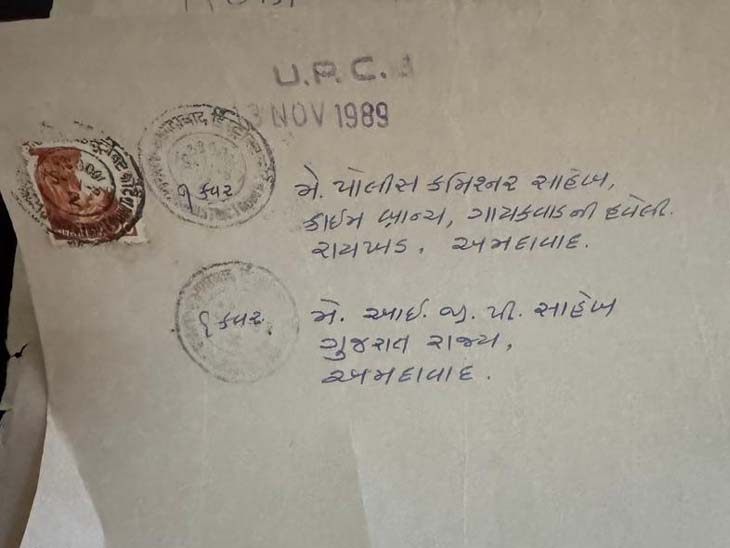 U.P.C.
3 NOV 1989
૧ કવર
મે. પોલીસ કમિશ્નર સાહેબ,
ક્રાઈમ બ્રાન્ચ, ગાયકવાડની હવેલી.
રાયખડ, અમદાવાદ.
૧ કવર
મે. આઈ. જી. પી. સાહેબ
ગુજરાત રાજ્ય,
અમદાવાદ.